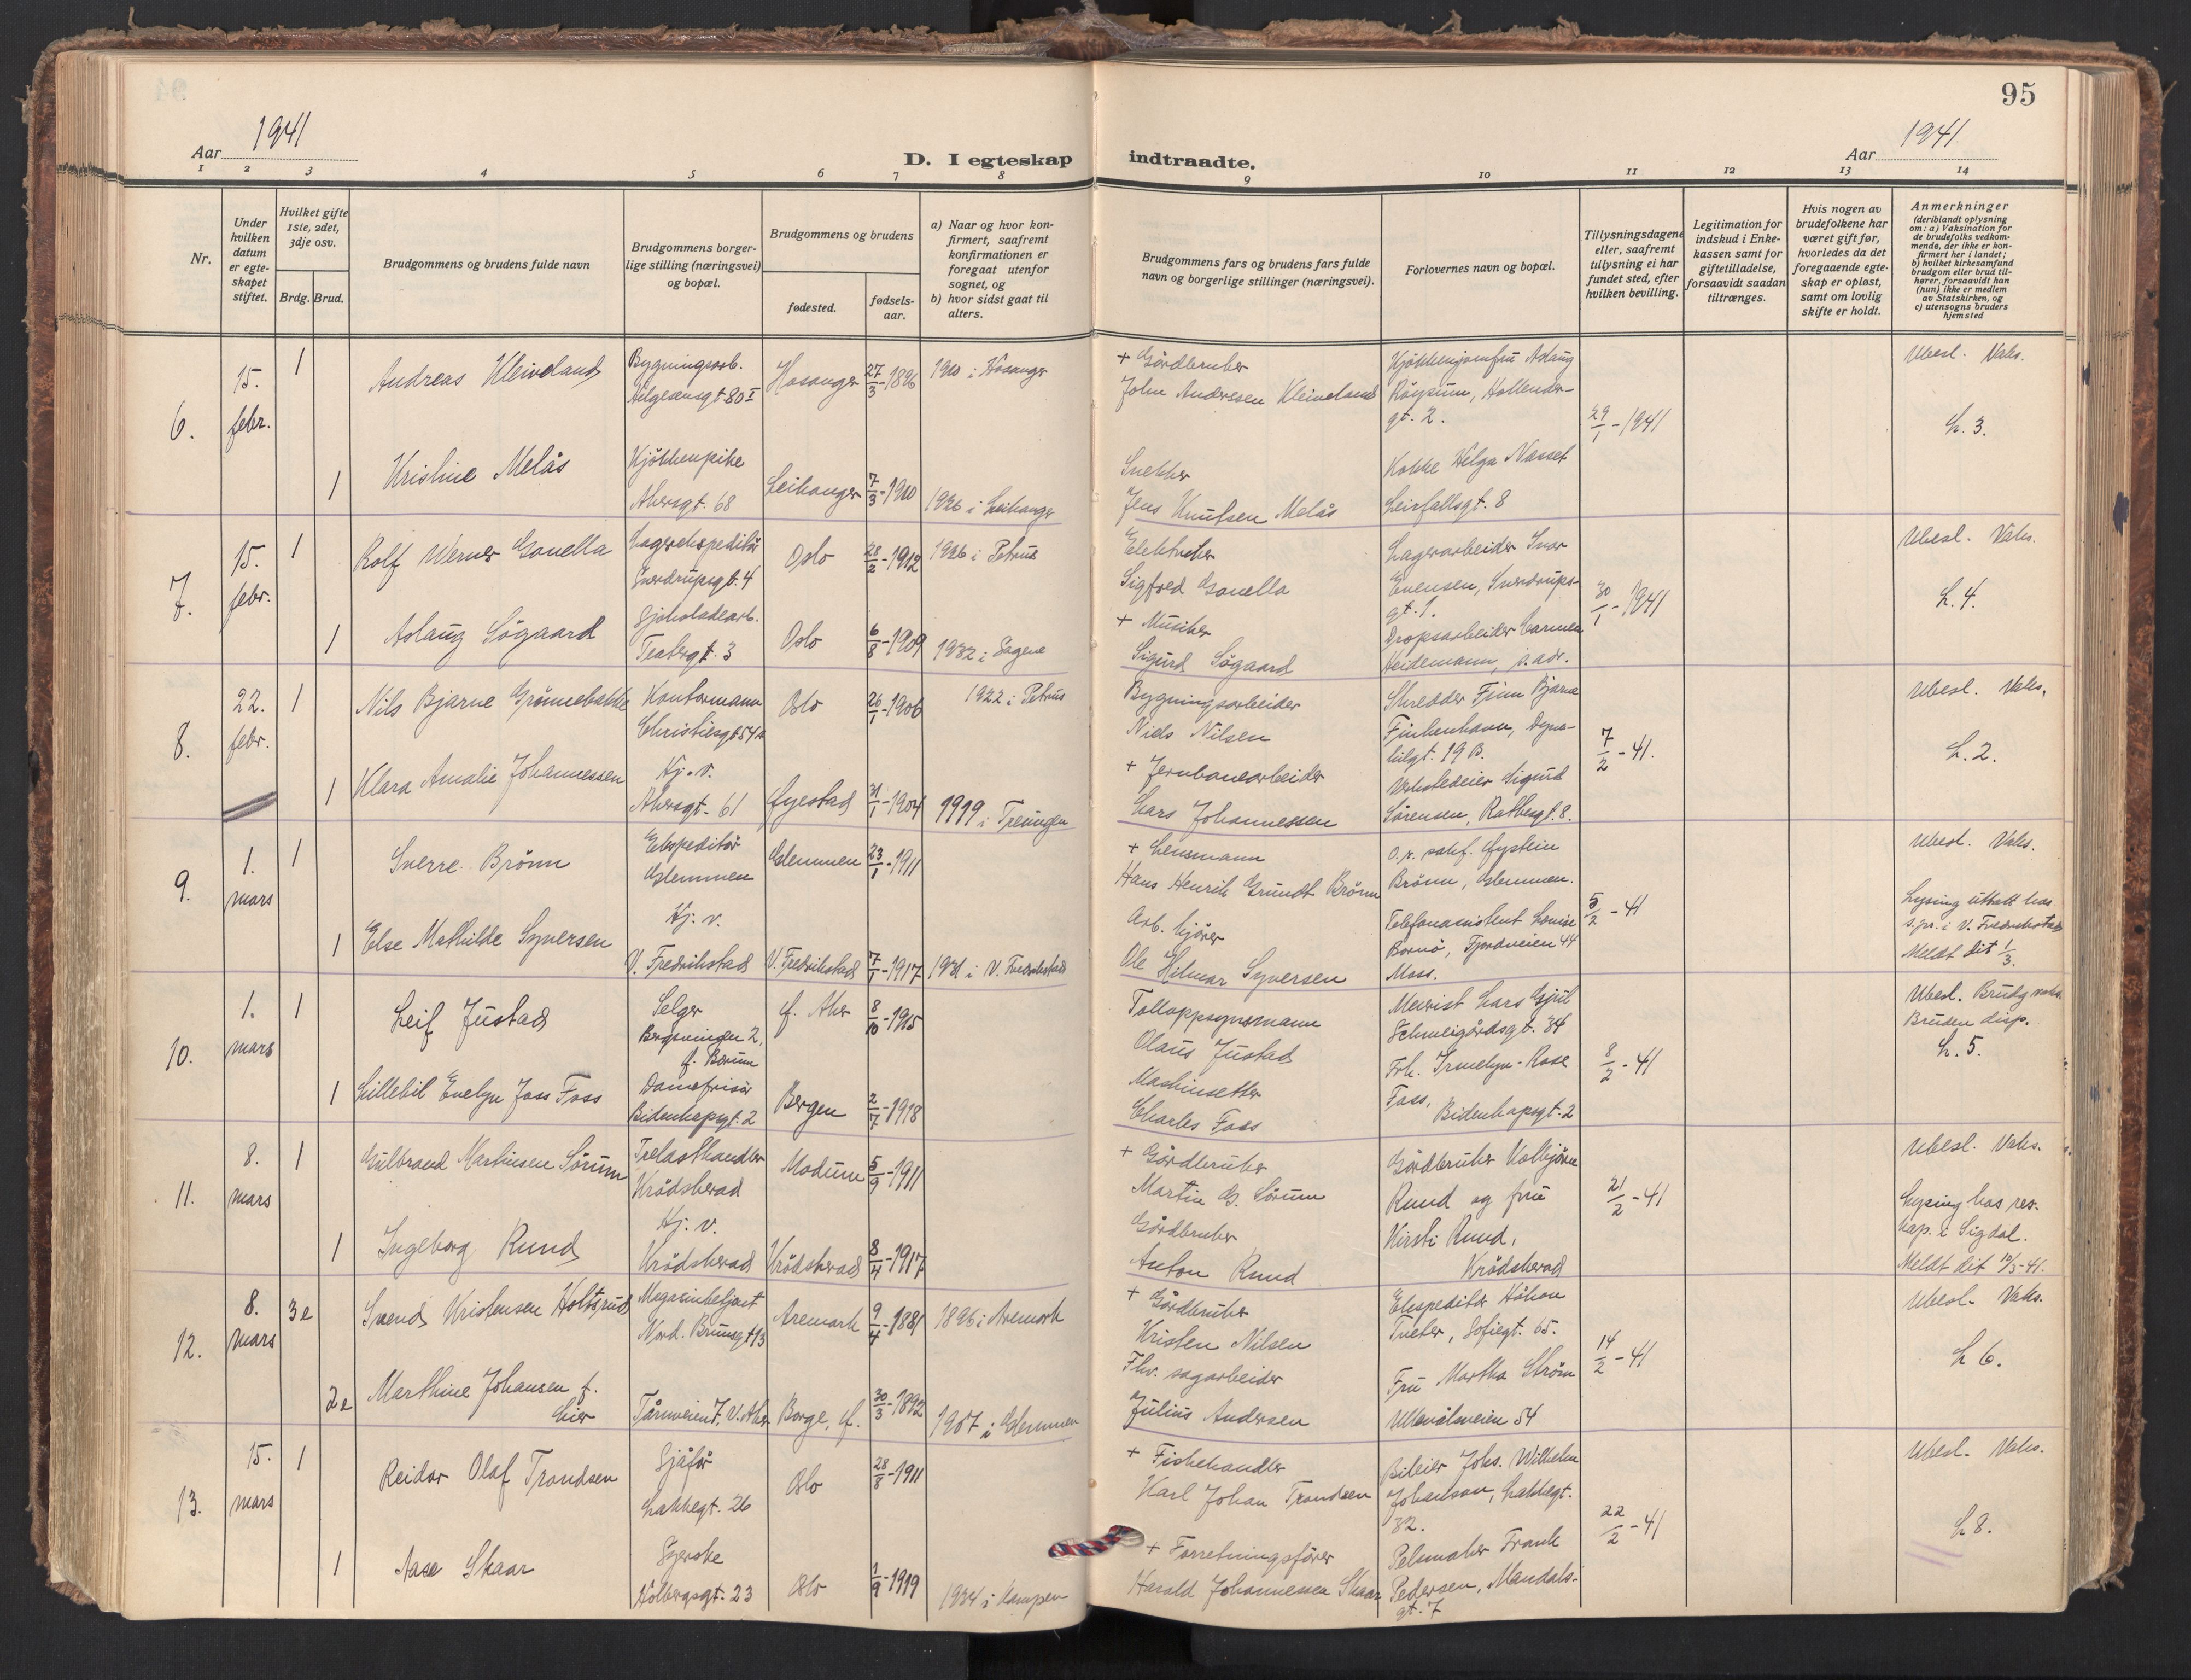 95
Aar 1941
D. I egteskap indtraadte.
Aar 1941
1 2 3 4 5 6 7 8 9 10 11 12 13 14
Nr.
Under hvilken datum er egteskapet stiftet.
Hvilket gifte 1ste, 2det, 3dje osv.
Brdg. Brud.
Brudgommens og brudens fulde navn
Brudgommens borgerlige stilling (næringsvei) og bopæl.
Brudgommens og brudens
fødested.
fødselsaar.
a) Naar og hvor konfirmert, saafremt konfirmationen er foregaat utenfor sognet, og
b) hvor sidst gaat til alters.
Brudgommens fars og brudens fars fulde navn og borgerlige stillinger (næringsvei).
Forlovernes navn og bopæl.
Tillysningsdagene eller, saafremt tillysning ei har fundet sted, efter hvilken bevilling.
Legitimation for indskud i Enkekassen samt for giftetilladelse, forsaavidt saadan tiltrænges.
Hvis nogen av brudefolkene har været gift før, hvorledes da det foregaaende egteskap er opløst, samt om lovlig skifte er holdt.
Anmerkninger
(deriblandt oplysning om: a) Vaksination for de brudefolks vedkommende, der ikke er konfirmert her i landet; b) hvilket kirkesamfund brudgom eller brud tilhører, forsaavidt han (hun) ikke er medlem av Statskirken, og c) utensogns bruders hjemsted
6. 15. febr. 1
Andreas Kleiveland
Bygningsarb.
Helgesensgt 80 I
Hosanger 27/3-1896
1910 i Hosanger
+ Gårdbruker
John Anderssen Kleiveland
Kjøkkenjomfru Aslaug
Röysum, Hollender-
gt. 2.
29/1-1941
Ubesl. Vaks.
L. 3.
1
Kristine Melås
Kjökkenpike
Akersgt. 68
Leikanger 7/3-1910
1926 i Leikanger
Snekker
Jens Knutsen Melås
Kokke Helga Nasset
Leirfallsgt. 8
7. 15. febr. 1
Rolf Werner Gonella
Lagerekspeditör
Sverdrupsgt. 4
Oslo 28/2-1912
1926 i Petrus
Elektriker
Sigfred Gonella
Lagerarbeider Ivar
Evensen, Sverdrups-
gt. 1.
30/1-1941
Ubesl. Vaks.
L. 4.
1
Aslaug Sögaard
Sjokoladearb.
Teatergt. 3
Oslo 6/8-1909
1932 i Sagene
+ Musiker
Sigurd Sögaard
Dropsarbeider Carmen
Heidemann, s. adr.
8. 22. febr. 1
Nils Bjarne Grönnebakke
Kontormann
Christiesgt 54a
Oslo 26/1-1906
1922 i Petrus
Bygningsarbeider
Niels Nilsen
Skredder Finn Bjarne
Finkenhavn, Dyna-
gt. 19 B.
7/2-41.
Ubesl. Vaks.
L. 2.
1
Klara Amalie Johannessen
Hj. v.
Akersgt. 61
Øyestad 31/1-1904
1919 i
+ Jernbanearbeider
Lars Johannessen
Verkstedeier Sigurd
Sörensen, Rathkesgt. 8.
9. 1. mars 1
Sverre Brönn
Ekspeditör
Glemmen
Glemmen 23/1-1911
+ Lensmann
Hans Henrik Grundt Brönn
O.r. sakf. Øystein
Brönn, Glemmen.
5/2-41
Ubesl. Vaks.
Lysing uttatt hos
s.pr. i V. Fredrikstad
Meldt dit 1/3.
1
Else Mathilde Syversen
Hj. v.
V. Fredrikstad
V. Fredrikstad 7/1-1917
1931 i V. Fredrikstad
Arb. kjörer
Ole Hilmar Syversen
Telefonassistent Louise
Bornö, Fjordveien 44
Moss.
10. 1. mars 1
Leif Justad
Selger
Bergsvingen 2,
f. Bærum
Ø. Aker 8/10-1915
Tolloppsynsmann
Olaus Justad
Meierist Lars Gjul
Schweigårdsgt. 34
8/2-41
Ubesl. Brudg vaks.
Bruden disp.
L. 5.
1
Lillebil Evelyn Joss Foss
Damefrisör
Bidenkapsgt. 2
Bergen 2/7-1918
Maskinsetter
Charles Foss
Frk. Irmelyn-Rose
Foss, Bidenkapsgt. 2
11. 8. mars 1
Gulbrand Martinsen Sörum
Trelasthandler
Krödsherad
Modum 5/9-1911
+ Gårdbruker
Martin G. Sörum
Gårdbruker Kolbjörn
Ruud og fru
Kirsti Ruud,
Krödsherad
21/2-41
Ubesl. Vaks.
Lysing hos res.
kap. i Sigdal.
Meldt dit 10/3-41.
1
Ingeborg Ruud
Hj. v.
Krödsherad
Krödsherad 8/4-1917
Gårdbruker
Anton Ruud
12. 8. mars 3e
Svend Kristensen Holtsrud
Magasinbetjent
Nord. Brunsgt 13
Aremark 9/4-1881
1896 i Aremark
+ Gårdbruker
Kristen Nilsen
Ekspeditör Håkon
Tveter, Sofiegt. 65.
14/2-41
Ubesl. Vaks.
L 6.
2e
Marthine Johansen f.
Lier
Tårnveien 7, V. Aker
Borge, Ø. 30/3-1892
1907 i Glemmen
Fhv. sagarbeider
Julius Andersen
Fru Martha Ström
Ullevålsveien 54
13. 15. mars 1
Reidar Olaf Trondsen
Sjåför
Lakkegt. 26
Oslo 28/8-1911
+ Fiskehandler
Karl Johan Trondsen
Bileier Johs. Wilhelm
Johanson, Lakkegt.
32.
22/2-41
Ubesl. Vaks.
L 8.
1
Aase Skaar
Syerske
Holbergsgt. 23
Oslo 1/9-1919
1934 i Kampen
+ Forretningsförer
Harald Johannessen Skaar
Pelsmaker Frank
Pedersen, Mandals-
gt. 7